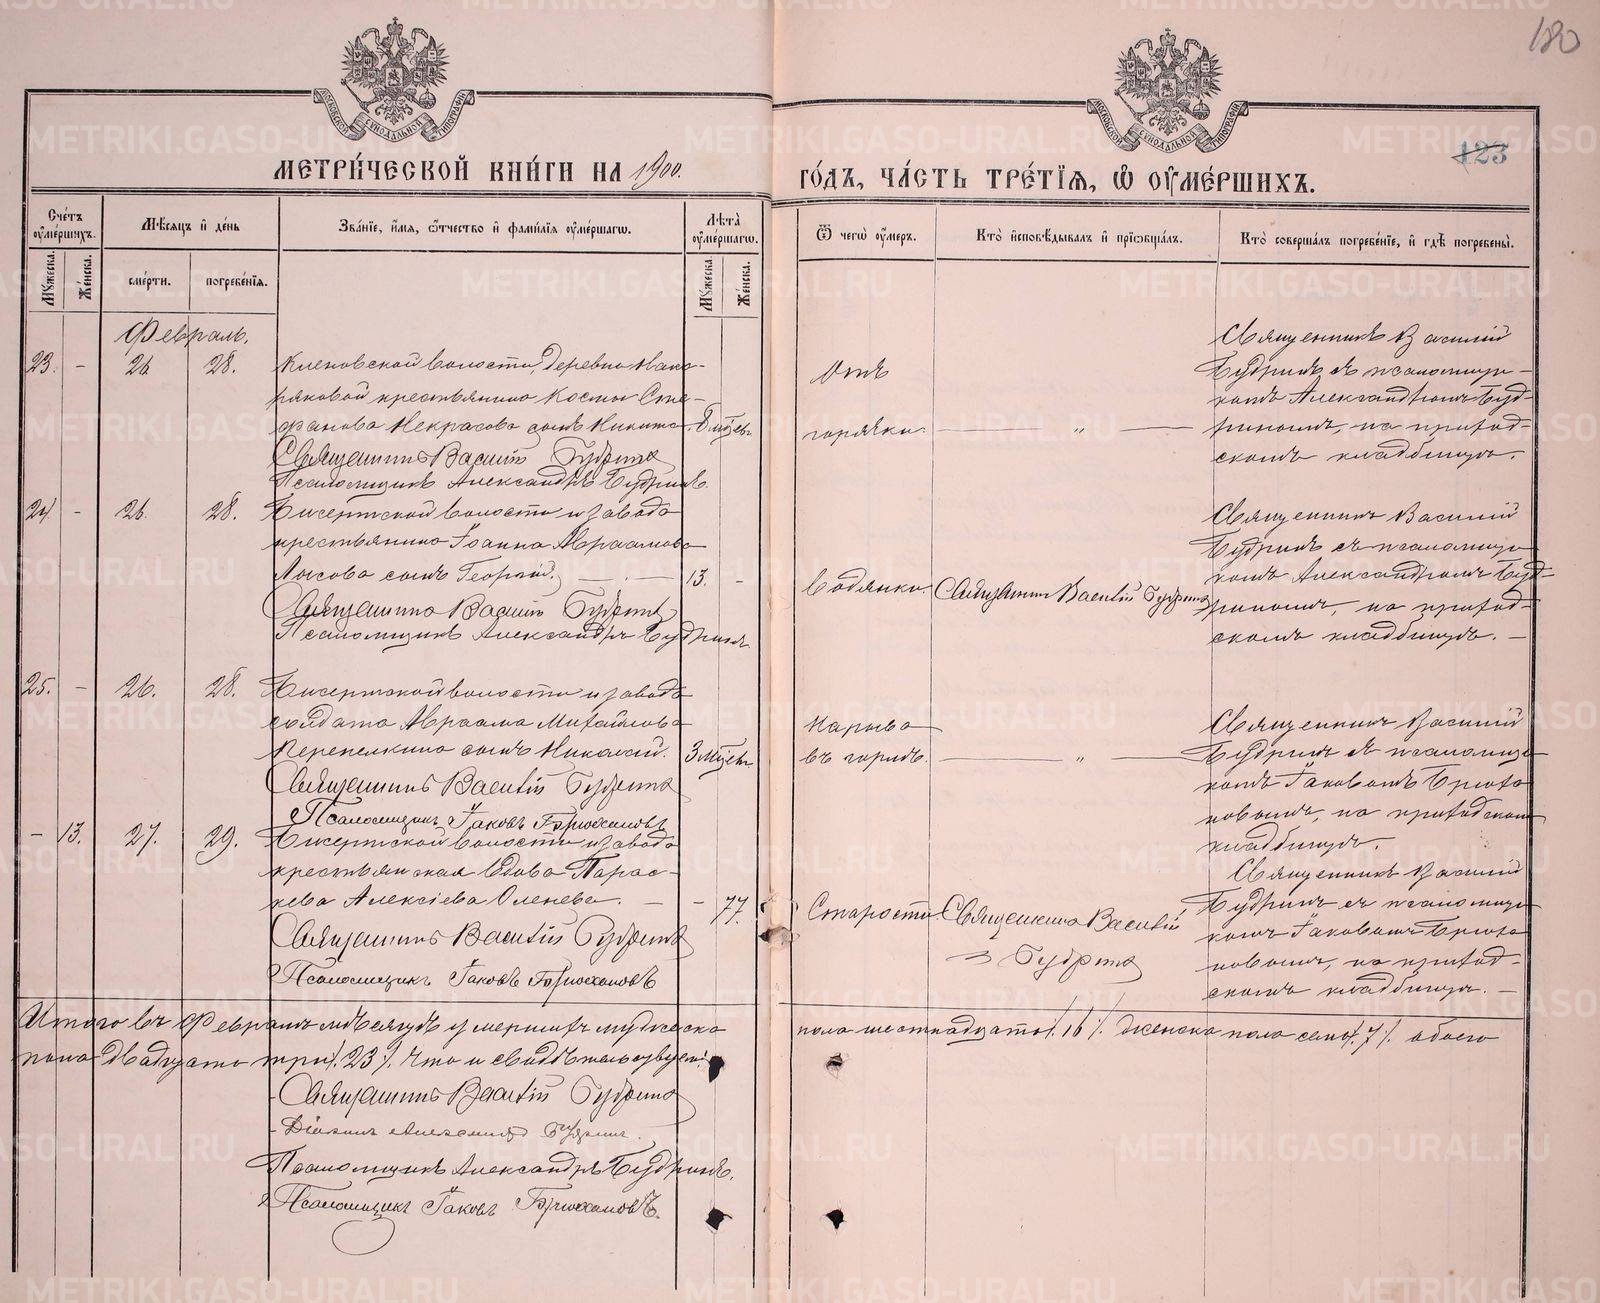 180
МОСКОВСКОЙ СѴНОДАЛЬНОЙ ТИПОГРАФІИ
МОСКОВСКОЙ СѴНОДАЛЬНОЙ ТИПОГРАФІИ
123
МЕТРИ́ЧЕСКОЙ КНИ́ГИ НА 1900.
ГО́ДЪ, ЧА́СТЬ ТРЕ́ТІѦ, Ѡ ОУ҆МЕ́РШИХЪ.
Сче́тъ оу҆ме́ршихъ.
Мѣ́сяцъ и҆ де́нь
Зва́нїе, и҆́мѧ, ѻ҆́тчество и҆ фами́лїѧ оу҆ме́ршагѡ.
Лѣ́та оу҆ме́ршагѡ.
Ѿ чегѡ̀ оу҆́меръ.
Кто̀ и҆сповѣ́дывалъ и҆ прїѡбща́лъ.
Кто̀ соверша́лъ погребе́нїе, и҆ гдѣ̀ погребены̀.
Мꙋ́жеска.
Же́нска.
сме́рти.
погребе́нїѧ.
Мꙋ́жеска.
Же́нска.
Февраль.
23. - 26 28. Кленовской волости, деревни Нако-
ряковой крестьянина Космы Сте-
фанова Некрасова сынъ Никита. 8 мѣсец.
Священникъ Василій Будринъ
Псаломщикъ Александръ Будринъ.
Отъ
горячки. — „ —
Священникъ Василій
Будринъ съ псаломщи-
комъ Александромъ Буд-
ринымъ, на приход-
скомъ кладбищѣ.
24. - 26. 28. Бисертской волости и завода
крестьянина Іоанна Авраамова
Лысова сынъ Георгій. — 13. -
Священникъ Василій Будринъ
Псаломщикъ Александръ Будринъ
Водянки. Священникъ Василій Будринъ
Священникъ Василій
Будринъ съ псаломщи-
комъ Александромъ Буд-
ринымъ, на приход-
скомъ кладбищѣ. —
25. - 26. 28. Бисертской волости и завода
солдата Авраама Михайлова
Перепелкина сынъ Николай. 3 мѣсец.
Священникъ Василій Будринъ
Псаломщикъ Іаковъ Брюхановъ
Нарыва
въ горлѣ. — „ —
Священникъ Василій
Будринъ съ псаломщи-
комъ Іаковомъ Брюха-
новымъ, на приходскомъ
кладбищѣ.
- 13. 27. 29. Бисертской волости и завода
крестьянская вдова Парас-
кева Алексіева Оленева. — - 77.
Священникъ Василій Будринъ
Псаломщикъ Іаковъ Брюхановъ
Старости. Священникъ Василій
Будринъ
Священникъ Василій
Будринъ съ псаломщи-
комъ Іаковомъ Брюха-
новымъ, на приход-
скомъ кладбищѣ. —
Итого въ Февралѣ мѣсяцѣ умершихъ мужеска
пола шестнадцать /.16./. женска пола семь /.7./. обоего
пола двадцать три /.23./. Что и свидѣтельствуемъ:
Священникъ Василій Будринъ
Діаконъ Александръ Будринъ.
Псаломщикъ Александръ Будринъ.
Псаломщикъ Іаковъ Брюхановъ.
METRIKI.GASO-URAL.RU